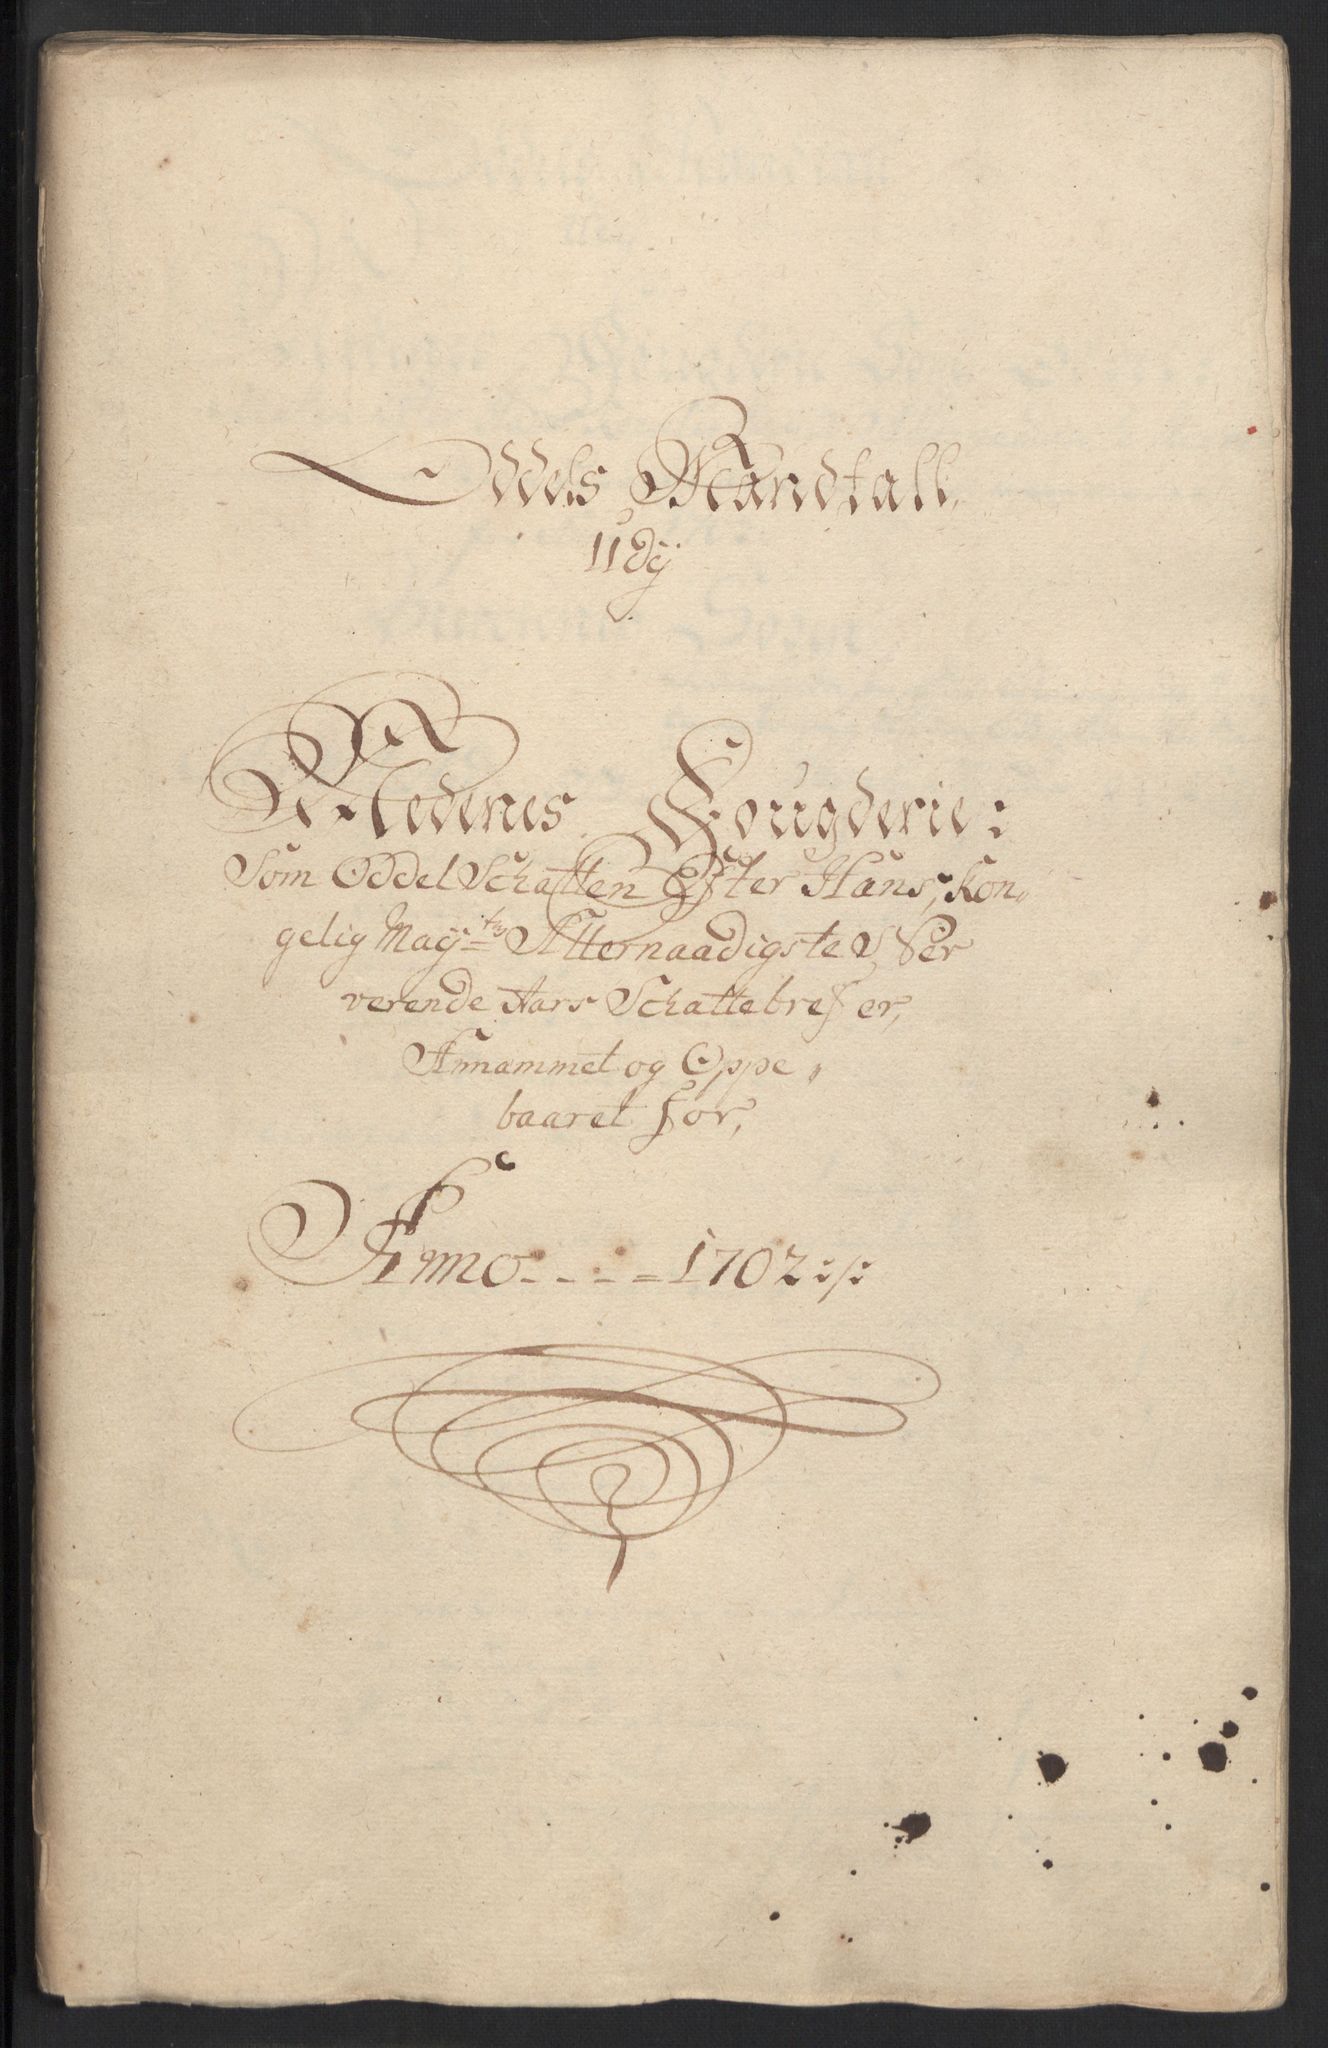 Oddels Mandtall
Udj
Nedenes Fougderie:
Som Oddel Schatten Efter Hans, Kon,
gelig Mayts Allernaadigste
verende Aars Schattebrefer,
Annammet og Oppe,
baaret for,
Anno - - - - 1702:/: